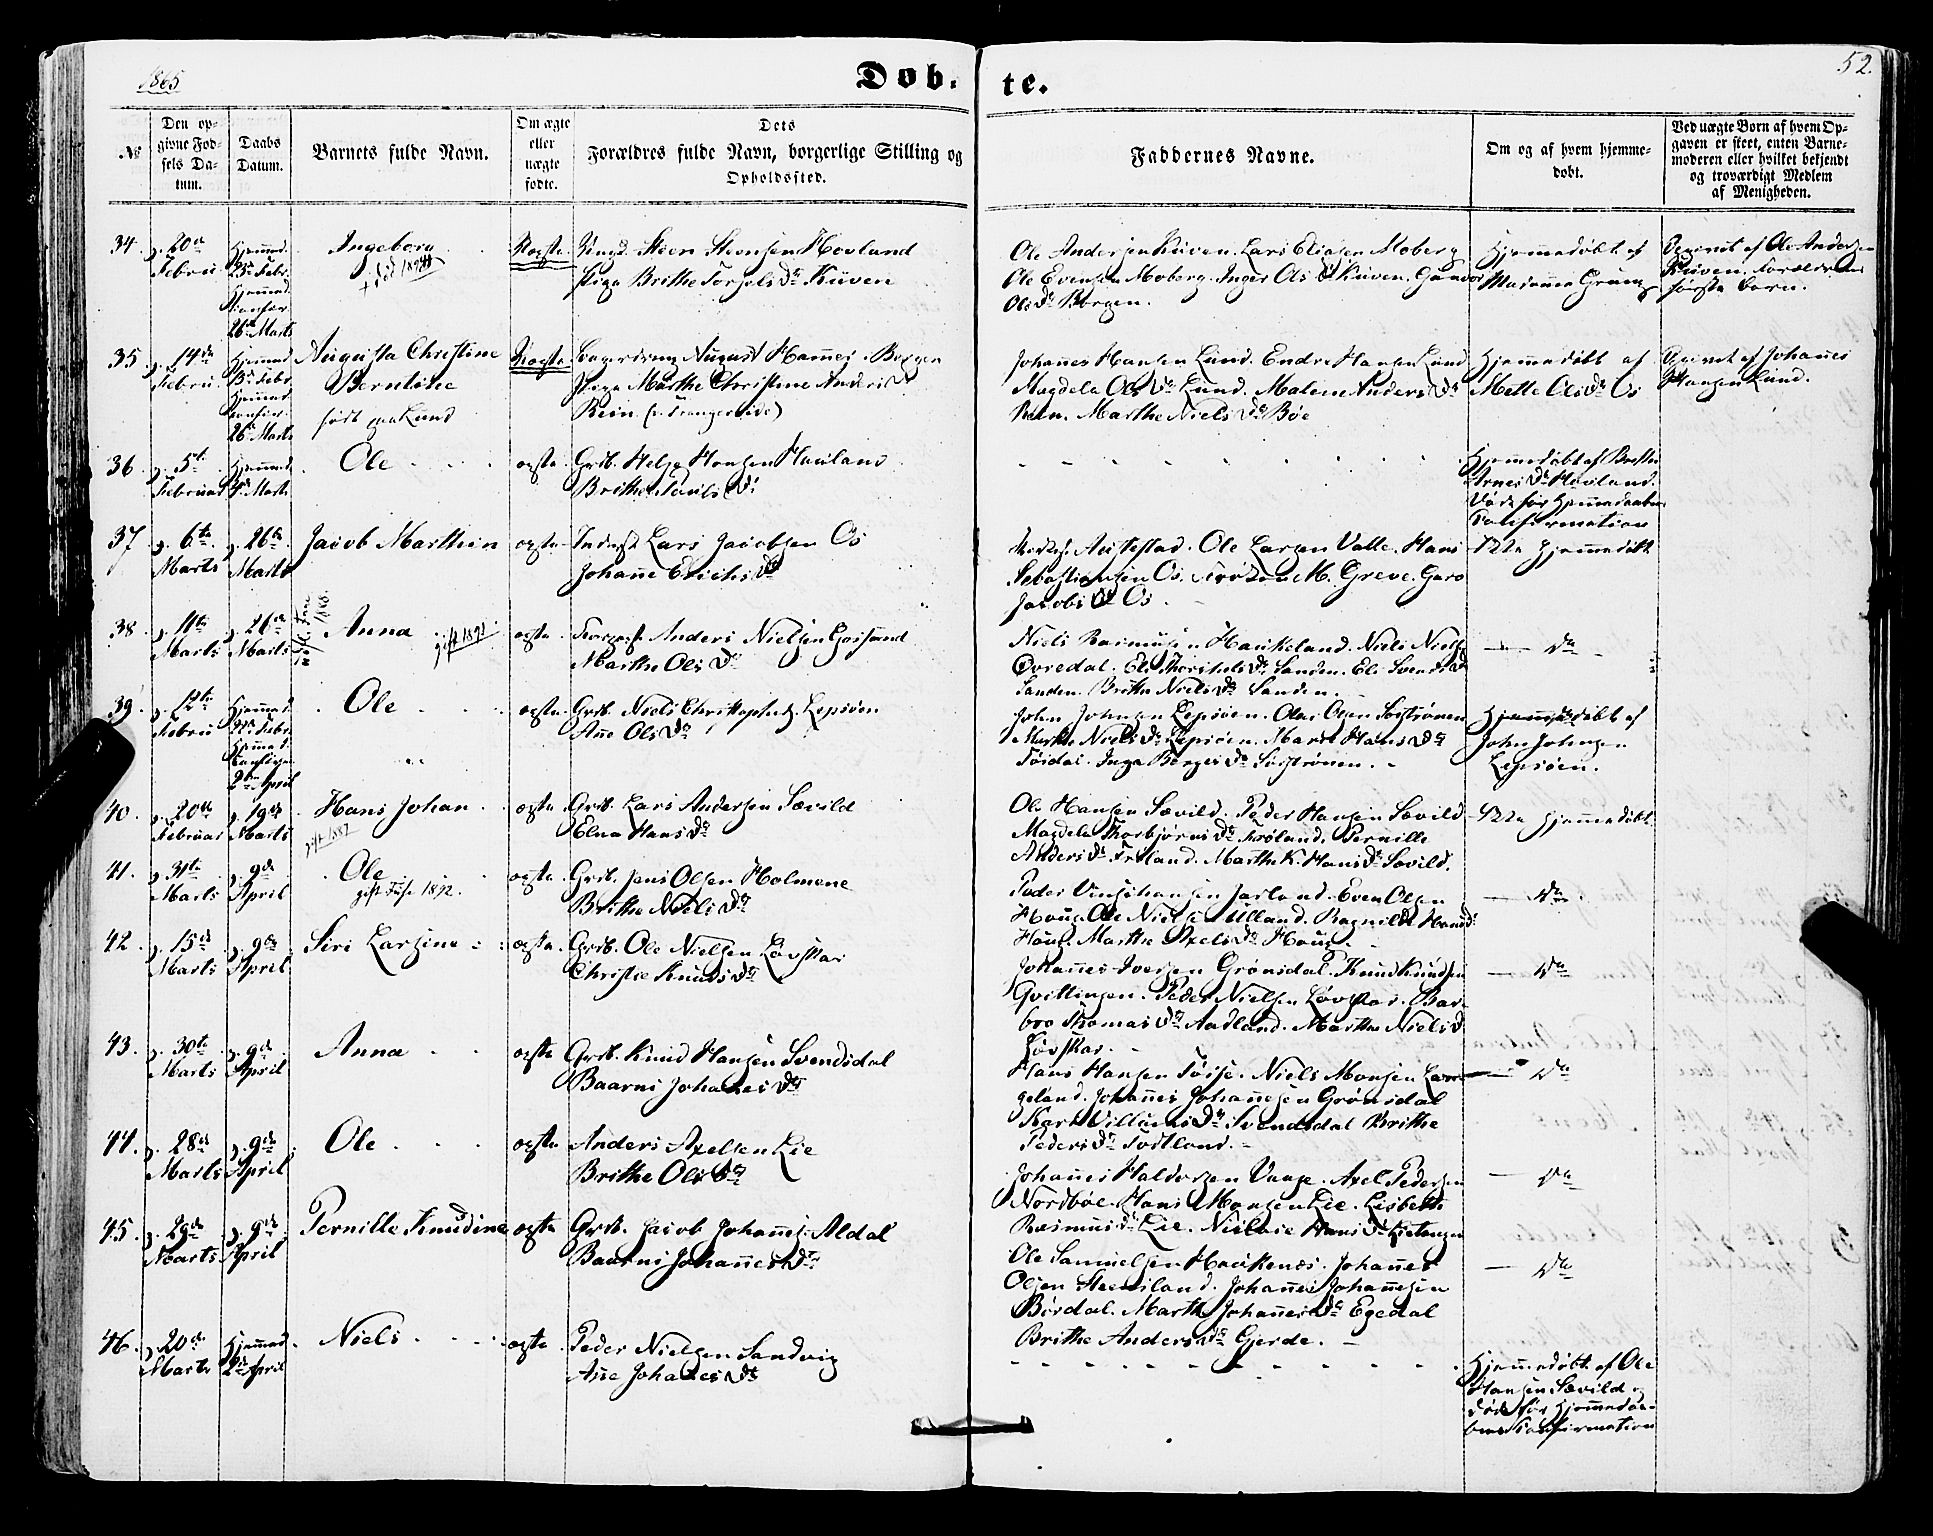 1865
Døb-
te.
52.
No
Den op-
givne Fød-
sels Da-
tum.
Daabs
Datum.
Barnets fulde Navn.
Om ægte
eller
uægte
fødte.
Dets
Forældres fulde Navn, borgerlige Stilling og
Opholdssted.
Faddernes Navne.
Om og af hvem hjemme-
døbt.
Ved uægte Børn af hvem Op-
gaven er skeet, enten Barne-
moderen eller hvilket bekjendt
og troværdigt Medlem
af Menigheden.
34
20de
Februar
Hjemmed.
25de Febr.
Hjemmed.
26de Marts
Ingeborg
Uægte
Steen Steensen Hovland
Pige Brithe Torgels Dr Kuven
Ole Andersen Kuven. Lars Eliasen Moberg
Ole Evensen Moberg. Inger Ols Dr Kuven.
Ols Dr Borgen.
Hjemmedøbt af
Madamme Greve
Opgivet af Ole Andersen
Kuven. Forældrenes
første Barn.
35
14de
Februar
Hjemmed.
Febr.
Hjemmed.
26de Marts
Augusta Christine
Berntine
født paa Lund
Uægte
August Hannes. Bergen
Pige Marthe Christine Anders Dr
Rein
Johannes Hansen Lund. Endre Hansen Lund
Magdela Ols Dr Lund. Malene Anders Dr
Rein. Marthe Niels Dr Bøe
Hjemmedøbt af
Mette Ols Dr Os
Opgivet af Johannes
Hansen Lund.
36
5te
Februar
Hjemmed.
Marts
Ole
ægte
Grb. Helge Hansen Hauland
Brithe Nils Dr
Hjemmedøbt af Brithe
Arnes Dr Hovland.
Død før Hjemmedaabens
Confirmation
37
6te
Marts
26de
Marts
Jacob Marthin
ægte
Inderst Lars Jacobsen Os
Johanne Erichs Dr
Ole Larsen Valle. Hans
Sebastiansen Os. Frøken M. Greve.
Jacobs Dr Os.
Ikke hjemmedøbt
38
11te
Marts
26de
Marts
Anna
gift 1891
ægte
Anders Nielsen
Marthe Ols Dr
Niels Rasmusen Haukeland. Niels Niels
Øvredal.
Sanden. Brithe Niels Dr Sanden.
Do
39
12te
Februar
Hjemmed.
Febr.
Hjemmed.
2den April
Ole
ægte
Grb. Niels Christophersen Lepsøen
Ane Ols Dr
John Johnsen Lepsøen. Olai Olsen Sørstrønen
Marthe Niels Dr Lepsøen. Marthe Hans Dr
Tøsdal. Inga Børges Dr Sørstrønen.
Hjemmedøbt af
John Johnsen
Lepsøen.
40
20de
Februar
19de
Marts
Hans Johan
gift 1887
ægte
Grb. Lars Andersen Sævild
Elna Hans Dr
Ole Hansen Sævild. Peder Hansen Sævild
Magdela Thorbjørns Dr Frøland. Pernille
Anders Dr Frøland. Marthe K. Hans Dr Sævild.
Ikke hjemmedøbt
41.
31te
Marts
9de
April
Ole
gift Fuse 1892.
ægte
Grb. Jens Olsen Holmene
Brithe Niels Dr
Peder Jarland. Even Olsen
Houg. Ole Nielsen Ulland. Ragnilde Hans Dr
Houg. Marthe Axels Dr Houg.
Do
42
15de
Marts
9de
April
Siri Larsine
ægte
Grb. Ole Nielsen Løvskar
Christie Knuds Dr
Johannes Iversen Grønsdal. Knud Knudsen
Gvittingen. Peder Nielsen Løvskar. Bar-
bro Thomas Dr Aadland. Marthe Niels D
Løvskar.
Do
43.
30te
Marts
9de
April
Anna
ægte
Grb. Knud Hansen Svendsdal
Baarni Johannes Dr
Hans Hansen Tøsse. Niels Monsen Lan-
geland. Johannes Johannesen Grønsdal
Kari Villums Dr Svendsdal Brithe
Peders Dr Søvtland.
Do
44.
28de
Marts
9de
April
Ole
ægte
Anders Axelsen Lie
Brithe Ols Dr
Johannes Haldorsen Vaage. Axel Pedersen
Nordbøe. Hans Monsen Lie. Lisbette
Rasmus Dr Lie.
Do
45.
Marts
9de
April
Pernille Knudine
ægte
Grb. Jacob Johannes. Aldal
Baarni Johannes Dr
Ole Samuelsen Haukenæs. Johannes
Olsen Steensland. Johannes Johannesen
Børdal. Marthe Johannes Dr Egedal
Brithe Anders Dr Gjerde.
Do
46.
20de
Marts
Hjemmed.
April
Niels
ægte
Peder Nielsen Sandvig
Ane Johannes Dr
Hjemmedøbt af Ole
Hansen Sævild og
død før Hjemmedaa-
bens Confirmation